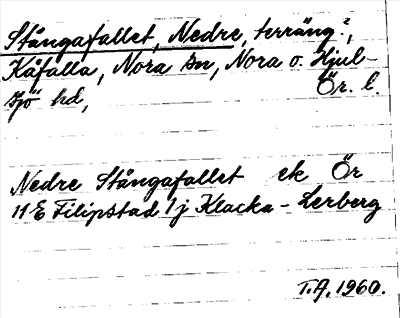 Stångafallet, Nedre, terräng?,
Kåfalla, Nora sn, Nora o. Hjul-
sjö hd, Ör. l.
Nedre Stångafallet ek Ör
11 E Filipstad 1 j Klacka-Lerberg
T.A. 1960.